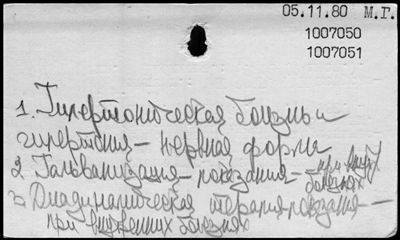 05.11.80 М.Г.
1007050
1007051
1. Гипертоническая болезнь и
гипертония – нервная форма
2. Гальванизация – показания – при внут.
болезнях
3. Диадинамическая терапия – показания –
при внутренних болезнях